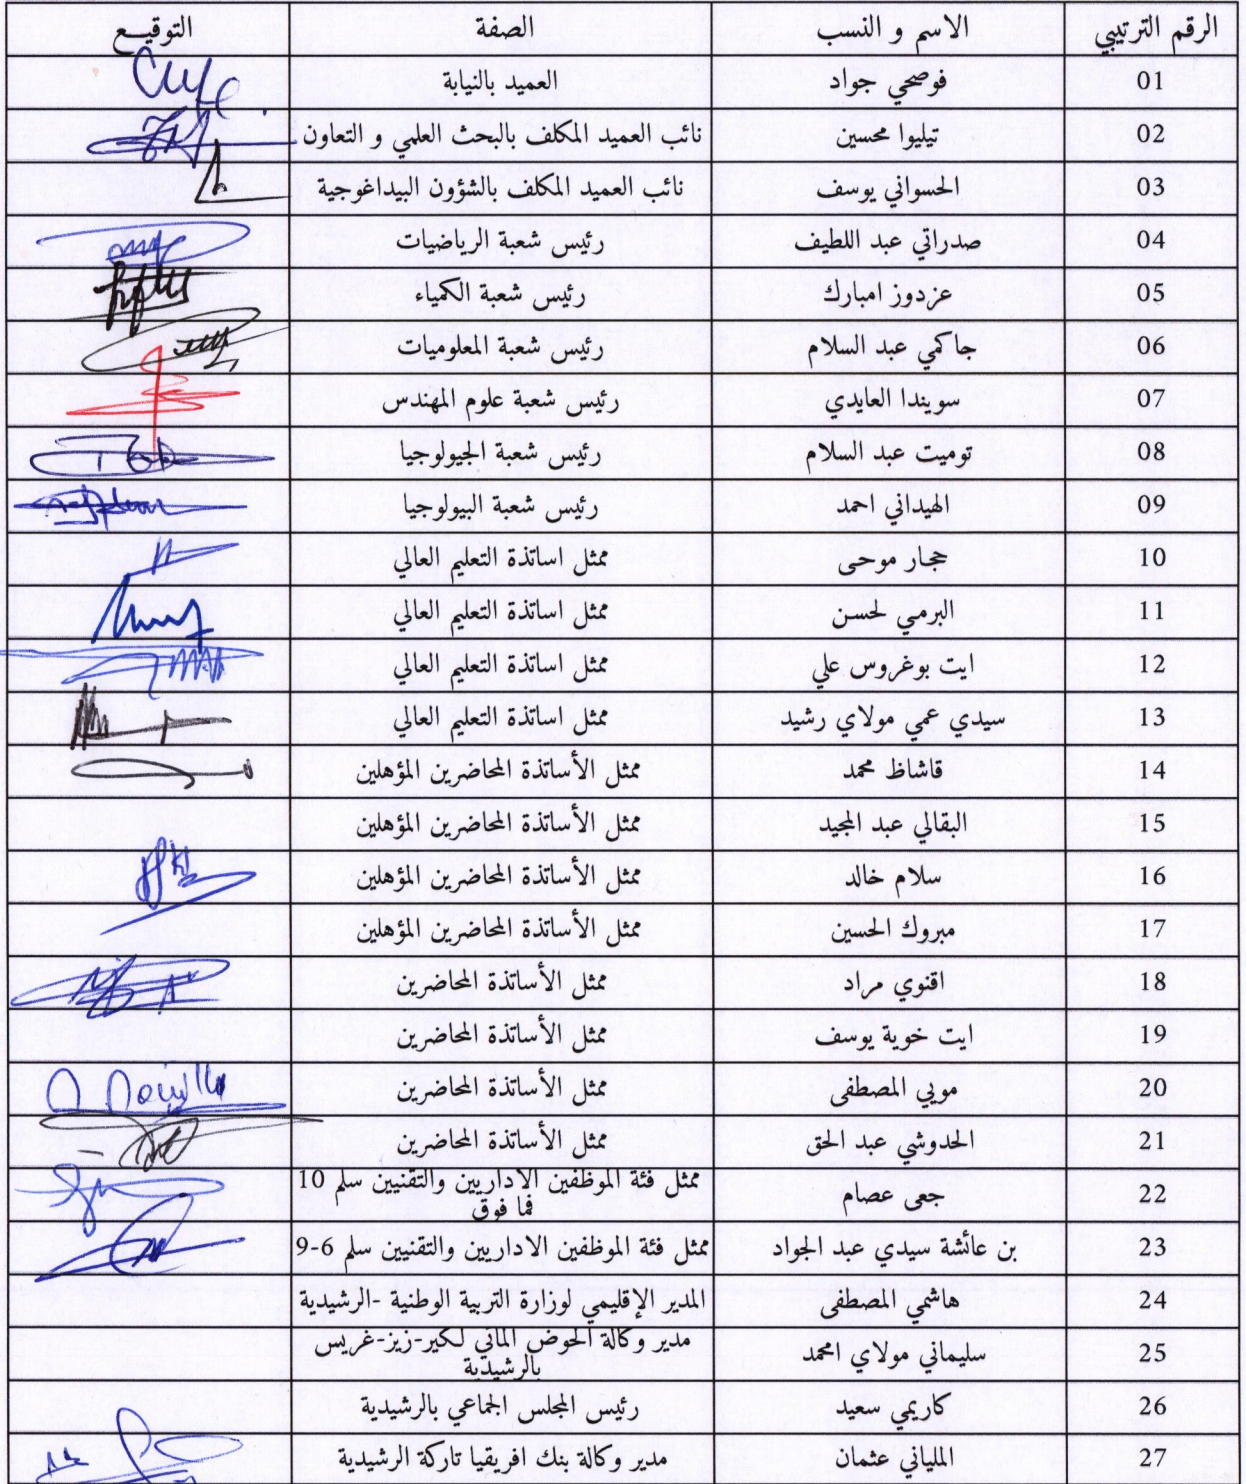 الرقم الترتيبي الاسم و النسب الصفة التوقيع
01 فوصحي جواد العميد بالنيابة
02 تيليوا محسين نائب العميد المكلف بالبحث العلمي و التعاون
03 الحسواني يوسف نائب العميد المكلف بالشؤون البيداغوجية
04 صدراتي عبد اللطيف رئيس شعبة الرياضيات
05 عزدوز امبارك رئيس شعبة الكمياء
06 جاكمي عبد السلام رئيس شعبة المعلوميات
07 سويندا العايدي رئيس شعبة علوم المهندس
08 توميت عبد السلام رئيس شعبة الجيولوجيا
09 الهيداني احمد رئيس شعبة البيولوجيا
10 حجار موحى ممثل اساتذة التعليم العالي
11 البرمي لحسن ممثل اساتذة التعليم العالي
12 ايت بوغروس علي ممثل اساتذة التعليم العالي
13 سيدي عمي مولاي رشيد ممثل اساتذة التعليم العالي
14 قاشاظ محمد ممثل الأساتذة المحاضرين المؤهلين
15 البقالي عبد المجيد ممثل الأساتذة المحاضرين المؤهلين
16 سلام خالد ممثل الأساتذة المحاضرين المؤهلين
17 مبروك الحسين ممثل الأساتذة المحاضرين المؤهلين
18 اقنوي مراد ممثل الأساتذة المحاضرين
19 ايت خوية يوسف ممثل الأساتذة المحاضرين
20 مويي المصطفى ممثل الأساتذة المحاضرين
21 الحدوشي عبد الحق ممثل الأساتذة المحاضرين
22 جعى عصام ممثل فئة الموظفين الاداريين والتقنيين سلم 10
فما فوق
23 بن عائشة سيدي عبد الجواد ممثل فئة الموظفين الاداريين والتقنيين سلم 6-9
24 هاشمي المصطفى المدير الإقليمي لوزارة التربية الوطنية -الرشيدية
25 سليماني مولاي امحمد مدير وكالة الحوض المائي لكير-زيز-غريس
بالرشيدية
26 كاريمي سعيد رئيس المجلس الجماعي بالرشيدية
27 الملياني عثمان مدير وكالة بنك افريقيا تاركة الرشيدية